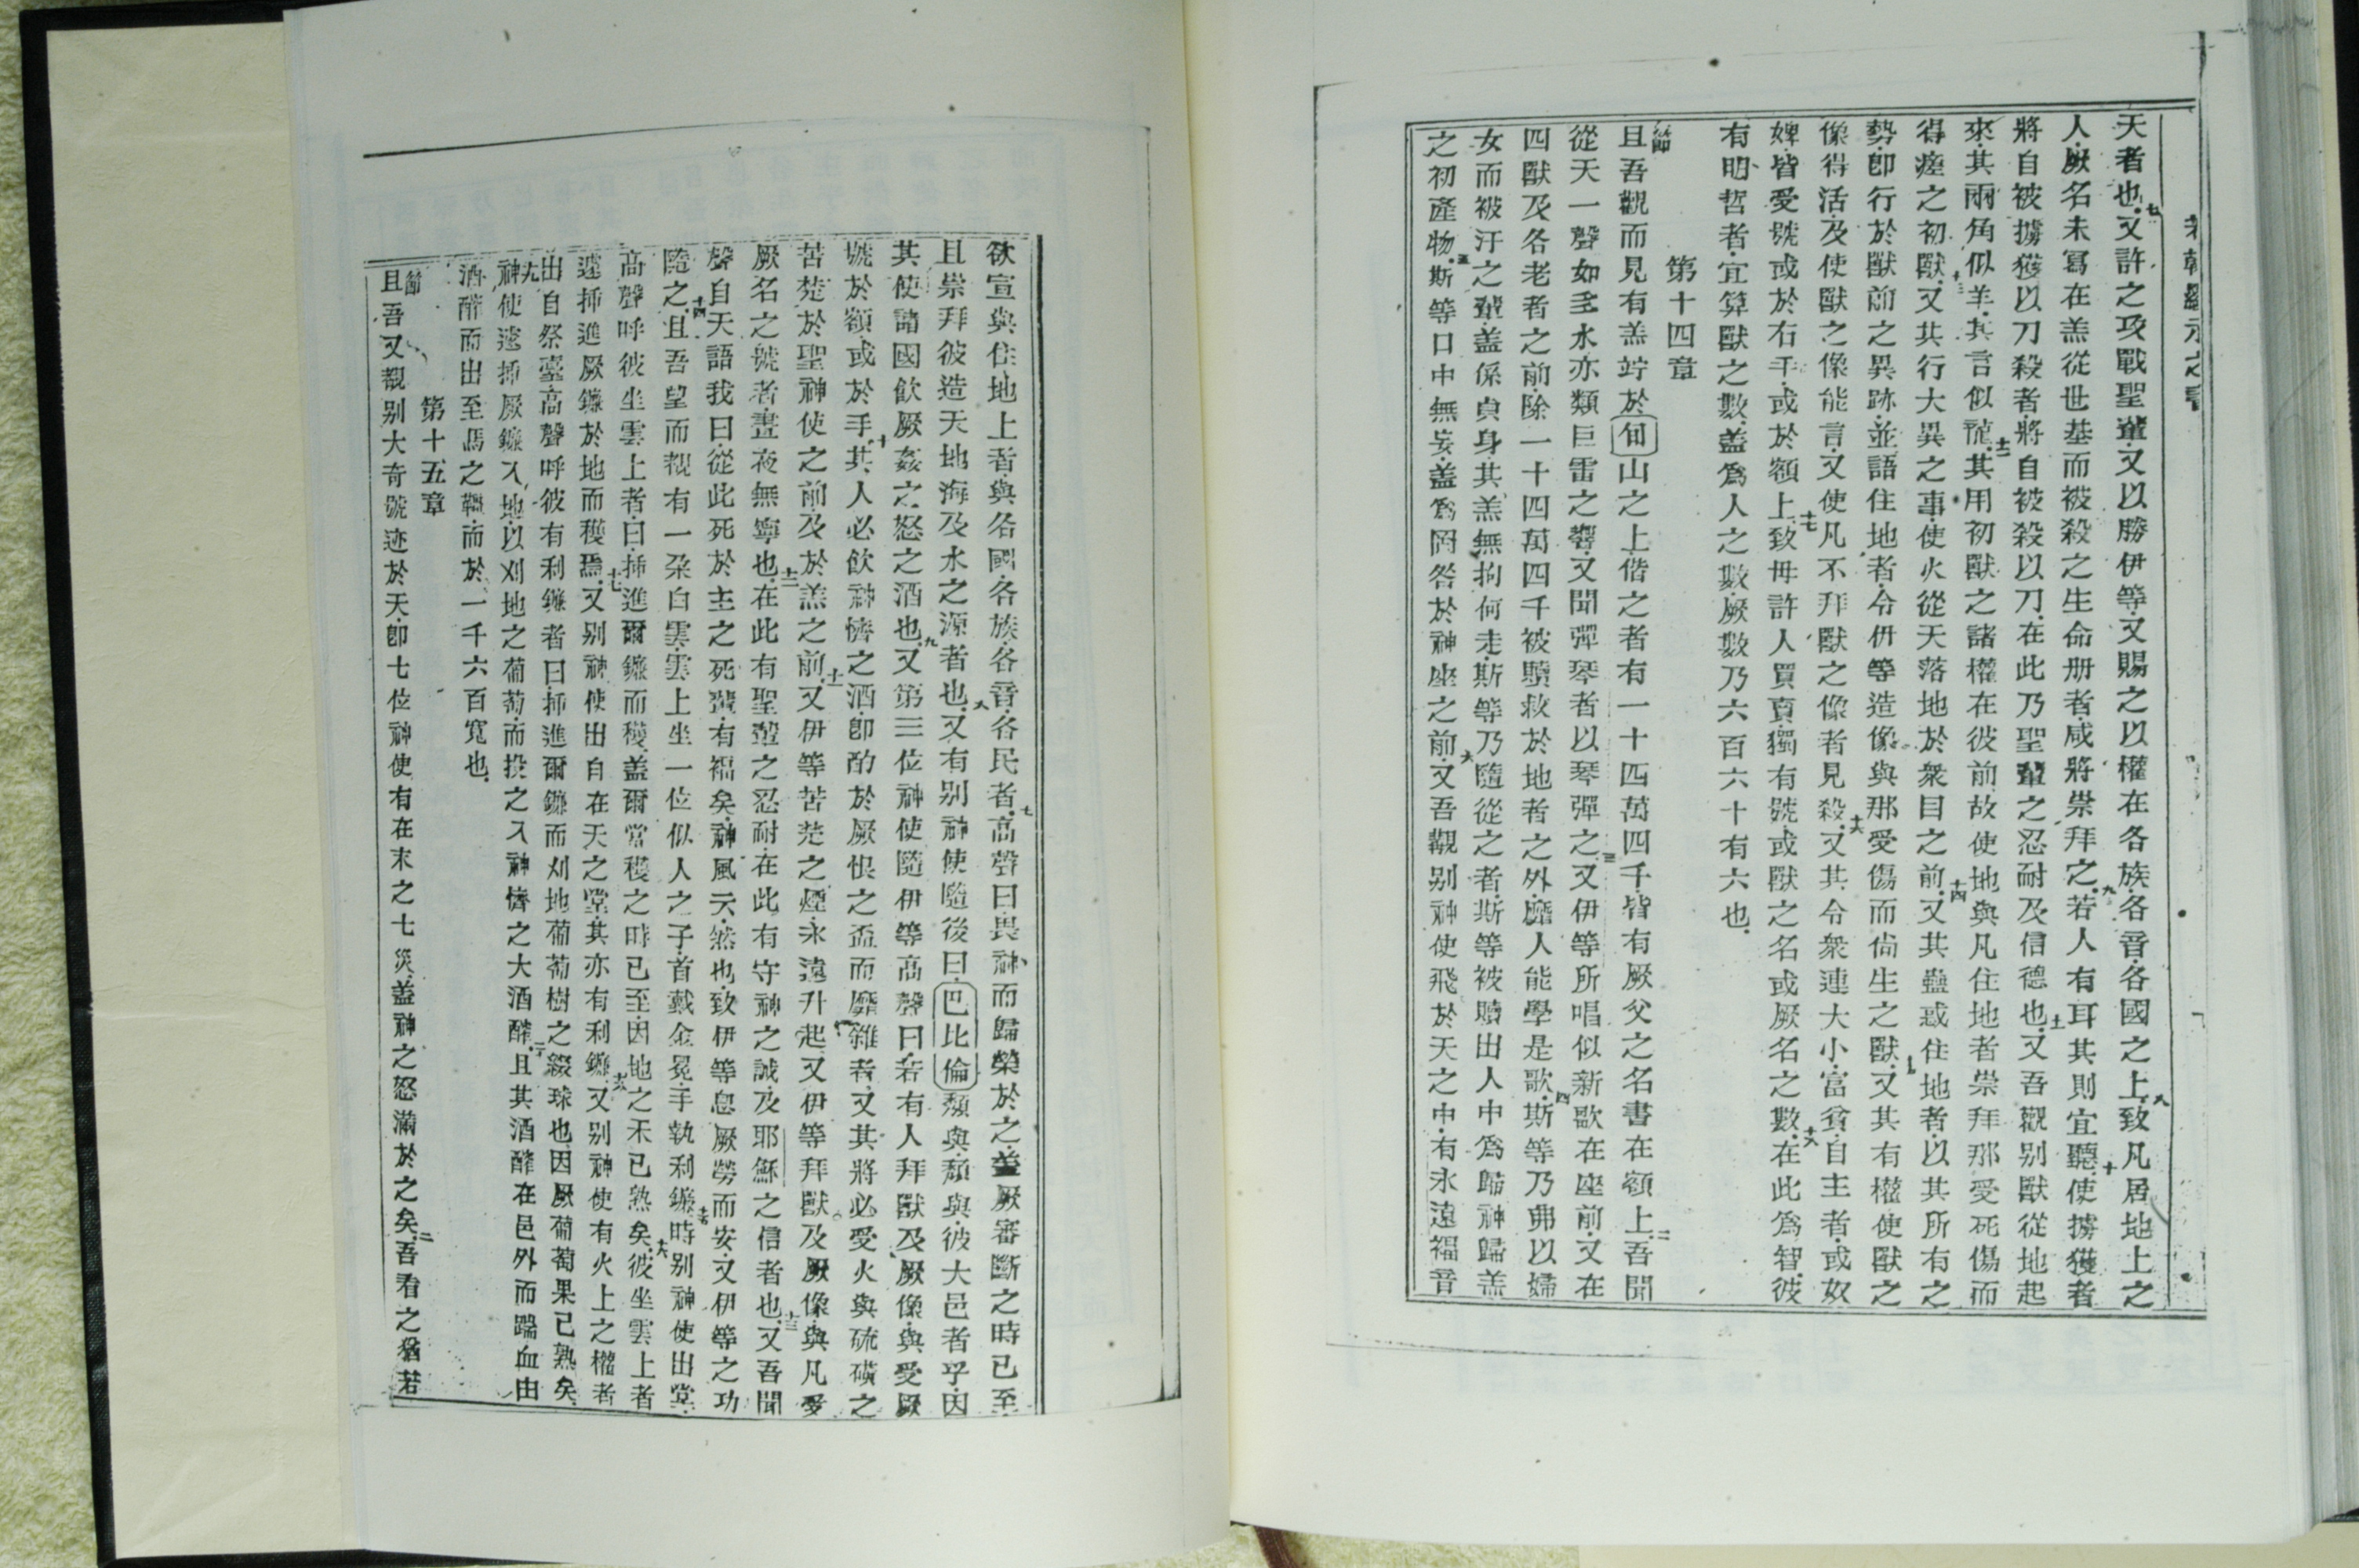 若翰顯示之書
天者也七又許之攻戰聖輩又以勝伊等又賜之以權在各族各音各國之上八致凡居地上之
人厥名未寫在羔從世基而被殺之生命册者咸將崇拜之九若人有耳其則宜聽十使擄獲者
將自被擄獲以刀殺者將自被殺以刀在此乃聖輩之忍耐及信德也十一又吾觀别獸從地起
來其兩角似羊其言似龍十二其用初獸之諸權在彼前故使地與凡住地者崇拜那受死傷而
得瘥之初獸十三又其行大異之事使火從天落地於衆目之前十四又其蠱惑住地者以其所有之
勢卽行於獸前之異跡並語住地者令伊等造像與那受傷而尙生之獸又其有權使獸之
像得活及使獸之像能言又使凡不拜獸之像者見殺十六又其令衆連大小富貧自主者或奴
婢皆受號或於右手或於額上十七致毋許人買賣獨有號或獸之名或厥名之數十八在此爲智彼
有明哲者宜算獸之數盖爲人之數厥數乃六百六十有六也
第十四章
節且吾觀而見有羔竚於旬山之上偕之者有一十四萬四千皆有厥父之名書在額上二吾聞
從天一聲如多水亦類巨雷之響又聞彈琴者以琴彈之三又伊等所唱似新歌在座前又在
四獸及各老者之前除一十四萬四千被贖救於地者之外靡人能學是歌四斯等乃弗以婦
女而被汙之輩盖係貞身其羔無拘何走斯等乃隨從之者斯等被贖出人中爲歸神歸羔
之初產物五斯等口中無妄盖爲罔咎於神座之前六又吾觀别神使飛於天之中有永遠福音
欲宣與住地上者與各國各族各音各民者七高聲曰畏神而歸榮於之盖厥審斷之時已至
且崇拜彼造天地海及水之源者也八又有别神使隨後曰巴比倫頽與頽與彼大邑者乎因
其使諸國飲厥姦之怒之酒也九又第三位神使隨伊等高聲曰若有人拜獸及厥像與受厥
號於額或於手十其人必飲神憤之酒卽酌於厥恨之盃而靡雜者又其將必受火與硫磺之
苦楚於聖神使之前及於羔之前十一又伊等苦楚之煙永遠升起又伊等拜獸及厥像與凡受
厥名之號者晝夜無寧也十二在此有聖輩之忍耐在此有守神之誡及耶穌之信者也十三又吾聞
聲自天語我曰從此死於主之死輩有福矣神風云然也致伊等息厥勞而安又伊等之功
隨之十四且吾望而觀有一朶白雲雲上坐一位似人之子首戴金冕手執利鐮十五時别神使出堂
高聲呼彼坐雲上者曰揷進爾鐮而穫盖爾當穫之時已至因地之禾已熟矣十六彼坐雲上者
遽揷進厥鐮於地而穫焉十七又别神使出自在天之堂其亦有利鐮十八又别神使有火上之權者
出自祭臺高聲呼彼有利鐮者曰揷進爾鐮而刈地葡萄樹之綴球也因厥葡萄果已熟矣
十九神使遽揷厥鐮入地以刈地之葡萄而投之入神憤之大酒醡二十且其酒醡在邑外而踹血由
酒醡而出至馬之韁而於一千六百寬也
第十五章
節且吾又觀别大奇號迹於天卽七位神使有在末之七災盖神之怒滿於之矣二吾看之猶若